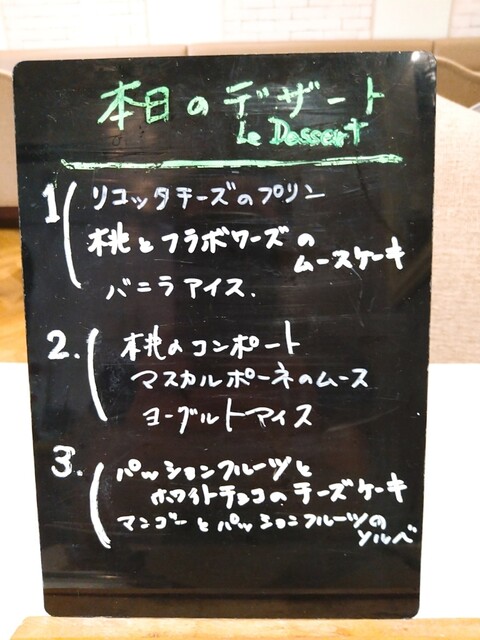 本日のデザート
Le Dessert
1 リコッタチーズのプリン
桃とフランボワーズの
ムースケーキ
バニラアイス.
2. 桃のコンポート
マスカルポーネのムース
ヨーグルトアイス
3. パッションフルーツと
ホワイトチョコのチーズケーキ
マンゴーとパッションフルーツの
ソルベ